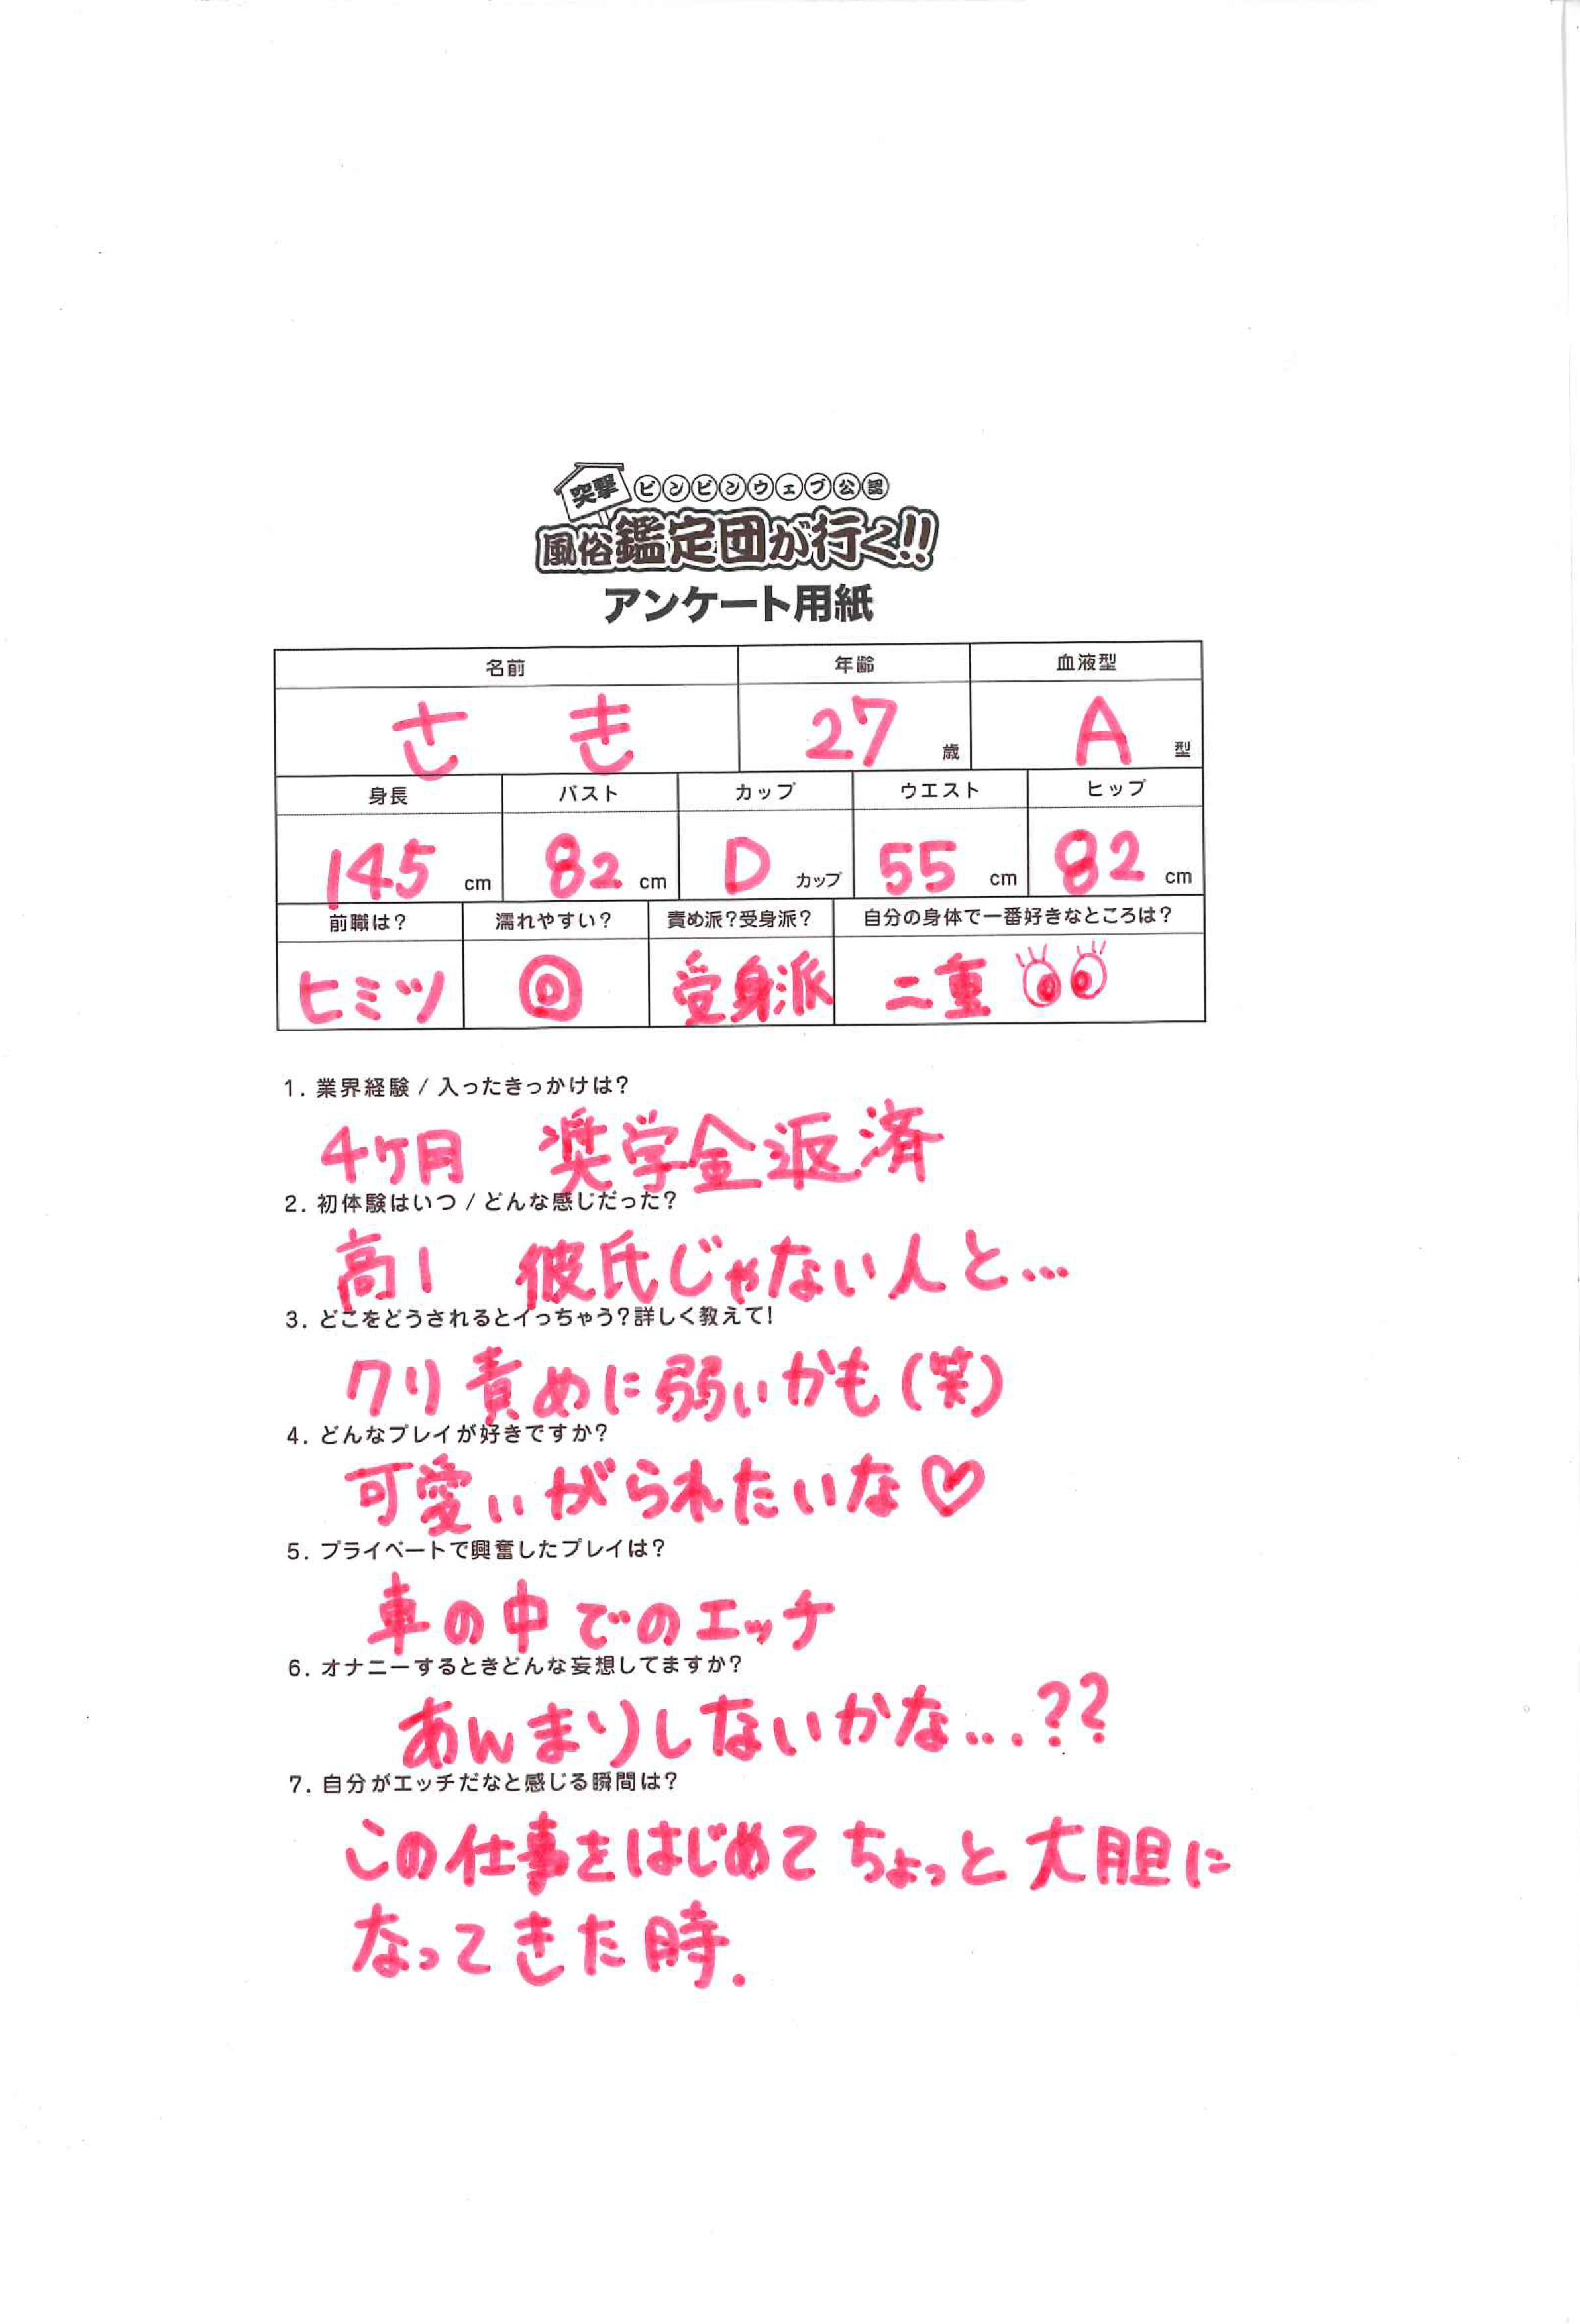 突撃 ビンビンウェブ公認
風俗鑑定団が行く!!
アンケート用紙
名前 年齢 血液型
さき 27歳 A型
身長 バスト カップ ウエスト ヒップ
145cm 82cm Dカップ 55cm 82cm
前職は? 濡れやすい? 責め派?受身派? 自分の身体で一番好きなところは?
ヒミツ ◎ 受身派 二重
1. 業界経験 / 入ったきっかけは?
4ヶ月 奨学金返済
2. 初体験はいつ / どんな感じだった?
高1 彼氏じゃない人と…
3. どこをどうされるとイっちゃう?詳しく教えて!
クリ責めに弱いかも(笑)
4. どんなプレイが好きですか?
可愛いがられたいな♡
5. プライベートで興奮したプレイは?
車の中でのエッチ
6. オナニーするときどんな妄想してますか?
あんまりしないかな….??
7. 自分がエッチだなと感じる瞬間は?
この仕事をはじめてちょっと大胆に
なってきた時.